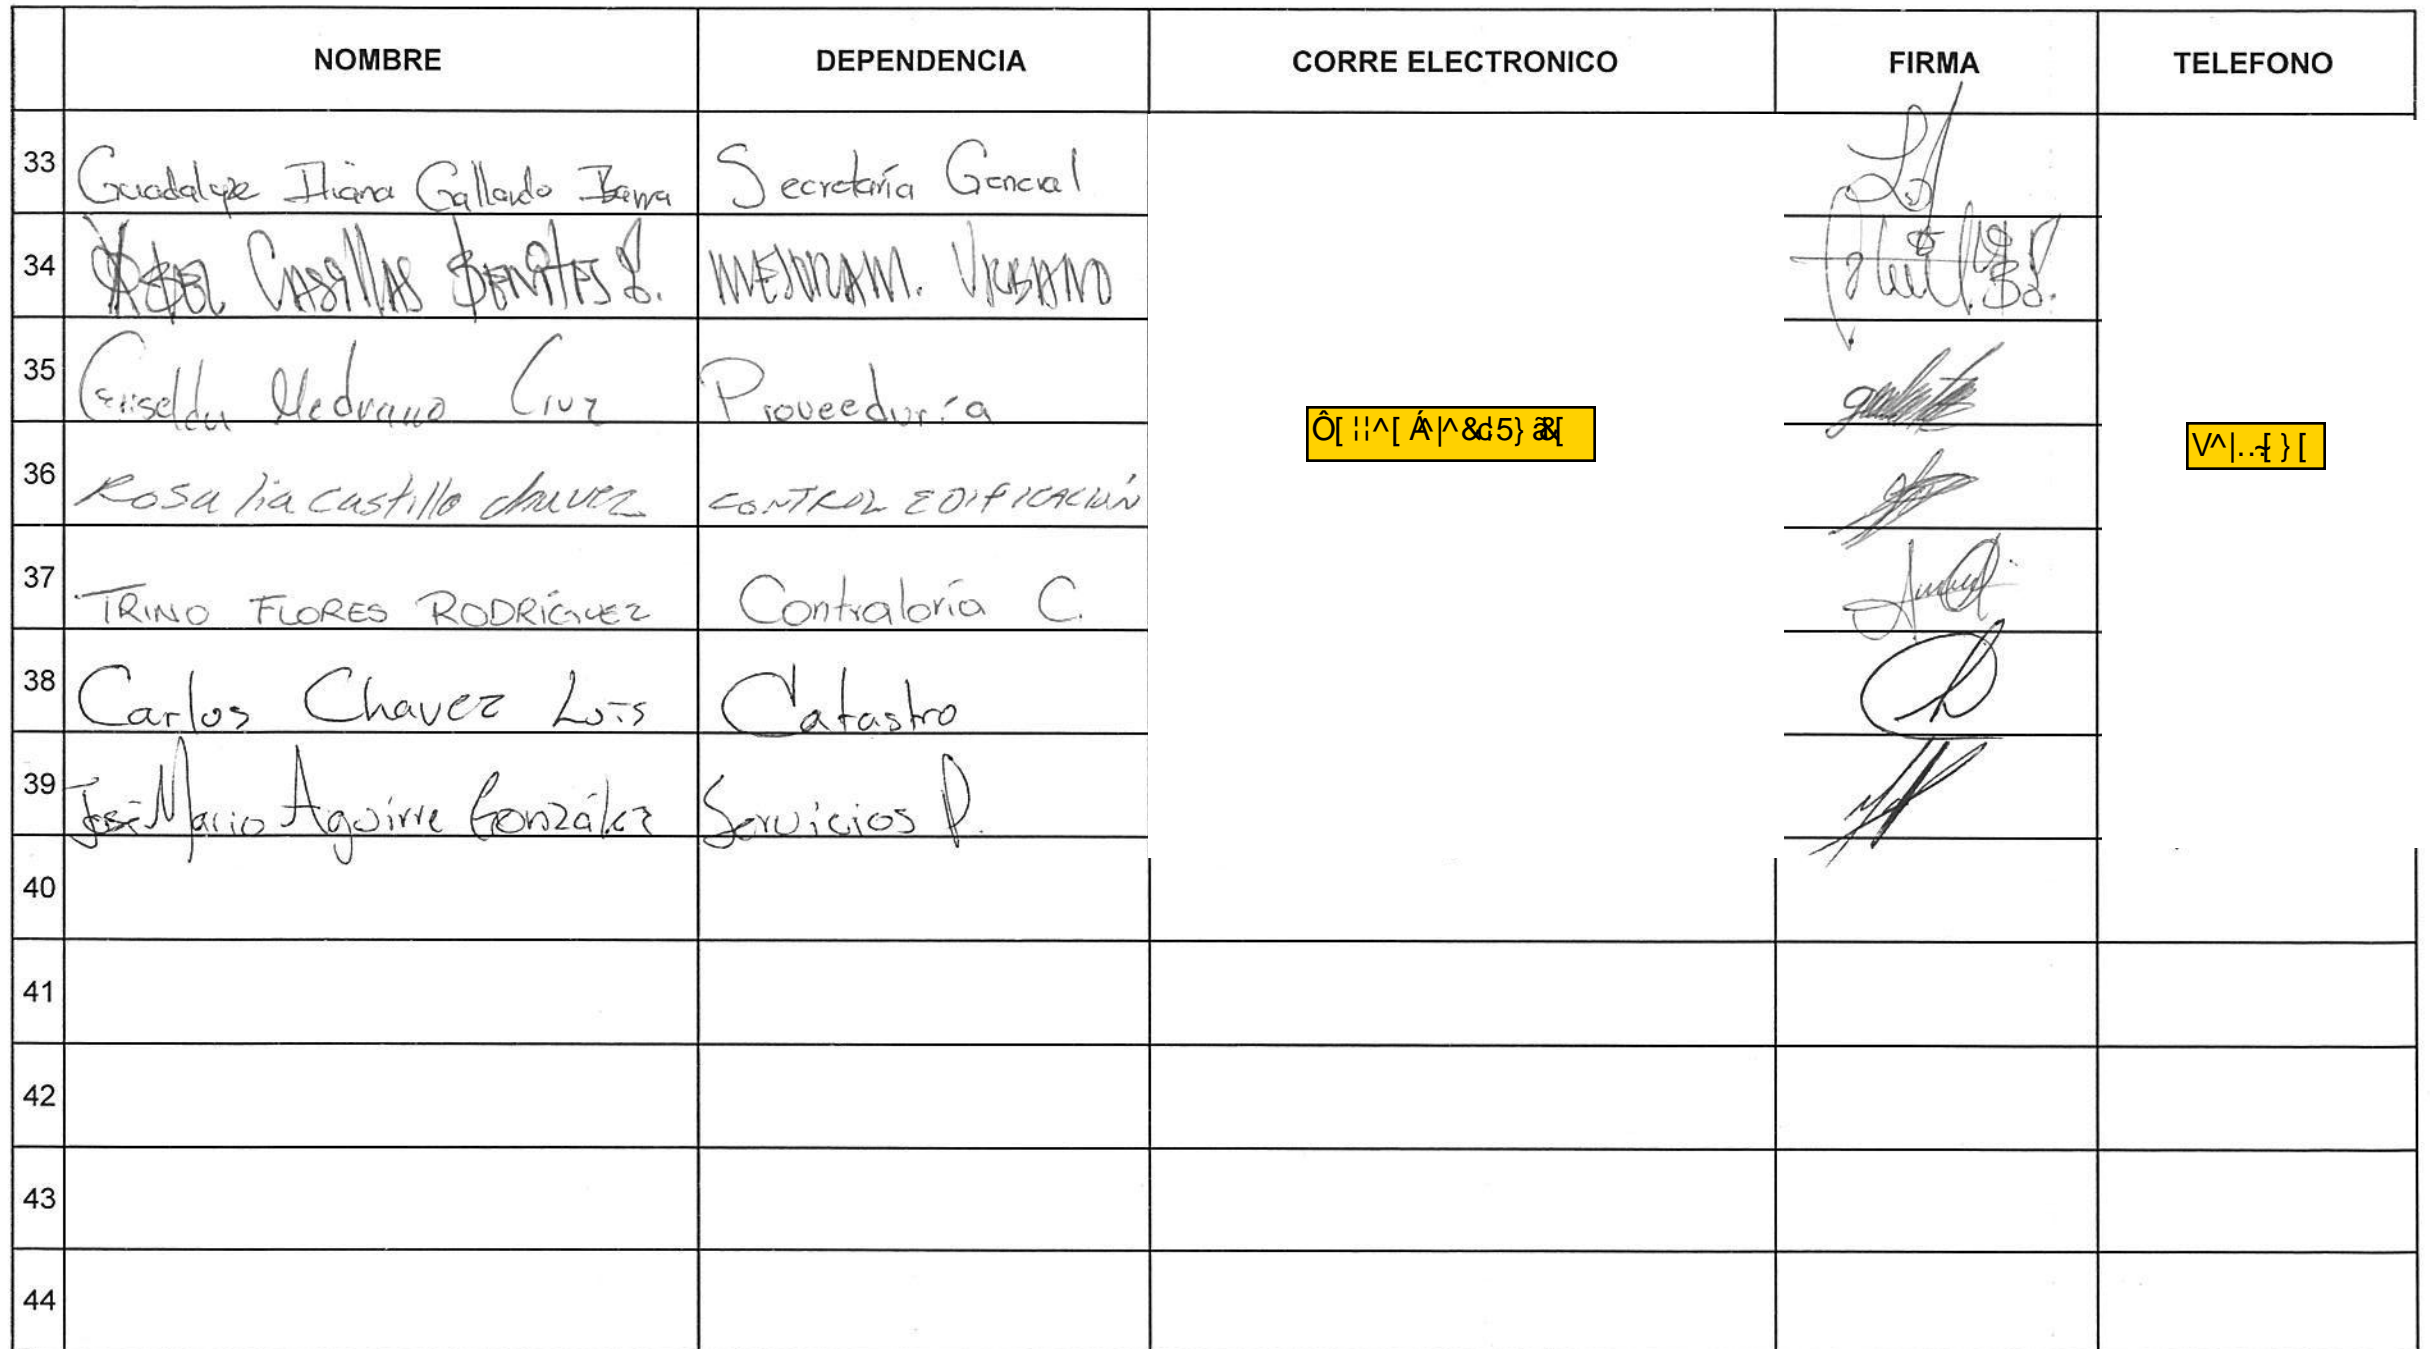 NOMBRE DEPENDENCIA CORRE ELECTRONICO FIRMA TELEFONO
33 Guadalupe Iliana Gallardo Ibarra Secretaría General
34 CASILLAS BENITES MEJORAM. URBANO
35 Medrano Cruz Proveeduría
36 Rosalia Castillo chavez CONTROL EDIFICACIÓN
37 TRINO FLORES RODRÍGUEZ Contraloría C.
38 Carlos Chavez Luis Catastro
39 José Mario Aguirre González Servicios P.
40
41
42
43
44